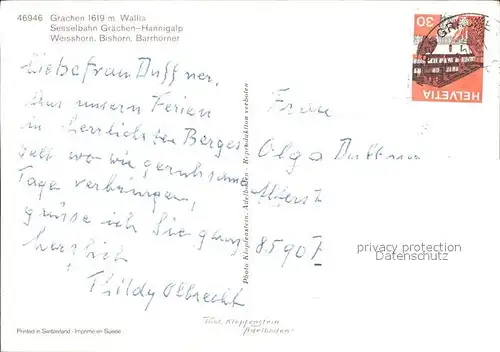 46946 Grächen 1619 m. Wallis
Sesselbahn Grächen-Hannigalp
Weisshorn, Bishorn, Barrhörner
Liebe Frau Duffner,
Aus unsern Ferien
in herrlichster Berges
welt wo wir geruhsame
Tage verbringen,
grüsse ich Sie ganz
herzlich
Thildy Albrecht
Printed in Switzerland - Imprimé en Suisse
Photo Klopfenstein, Adelboden - Reproduktion verboten
Phot. Klopfenstein
Adelboden
30
HELVETIA
Frau
Olga Duffner
8590
privacy protection
watermark